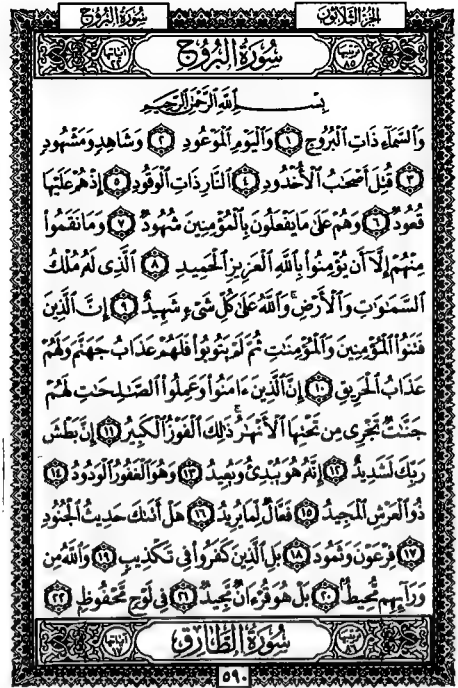 سُورَةُ البُرُوجِ
الجُزْءُ الثَّلَاثُونَ
ترتيبها ٨٥ سُورَةُ البُرُوجِ آياتها ٢٢
بِسْمِ اللَّهِ الرَّحْمَٰنِ الرَّحِيمِ
وَالسَّمَآءِ ذَاتِ الْبُرُوجِ ١ وَالْيَوْمِ الْمَوْعُودِ ٢ وَشَاهِدٍ وَمَشْهُودٍ
٣ قُتِلَ أَصْحَٰبُ الْأُخْدُودِ ٤ النَّارِ ذَاتِ الْوَقُودِ ٥ إِذْ هُمْ عَلَيْهَا
قُعُودٌ ٦ وَهُمْ عَلَىٰ مَا يَفْعَلُونَ بِالْمُؤْمِنِينَ شُهُودٌ ٧ وَمَا نَقَمُوا۟
مِنْهُمْ إِلَّآ أَن يُؤْمِنُوا۟ بِاللَّهِ الْعَزِيزِ الْحَمِيدِ ٨ الَّذِى لَهُۥ مُلْكُ
السَّمَٰوَٰتِ وَالْأَرْضِ ۚ وَاللَّهُ عَلَىٰ كُلِّ شَىْءٍ شَهِيدٌ ٩ إِنَّ الَّذِينَ
فَتَنُوا۟ الْمُؤْمِنِينَ وَالْمُؤْمِنَٰتِ ثُمَّ لَمْ يَتُوبُوا۟ فَلَهُمْ عَذَابُ جَهَنَّمَ وَلَهُمْ
عَذَابُ الْحَرِيقِ ١٠ إِنَّ الَّذِينَ ءَامَنُوا۟ وَعَمِلُوا۟ الصَّٰلِحَٰتِ لَهُمْ
جَنَّٰتٌ تَجْرِى مِن تَحْتِهَا الْأَنْهَٰرُ ۚ ذَٰلِكَ الْفَوْزُ الْكَبِيرُ ١١ إِنَّ بَطْشَ
رَبِّكَ لَشَدِيدٌ ١٢ إِنَّهُۥ هُوَ يُبْدِئُ وَيُعِيدُ ١٣ وَهُوَ الْغَفُورُ الْوَدُودُ ١٤
ذُو الْعَرْشِ الْمَجِيدُ ١٥ فَعَّالٌ لِّمَا يُرِيدُ ١٦ هَلْ أَتَىٰكَ حَدِيثُ الْجُنُودِ
١٧ فِرْعَوْنَ وَثَمُودَ ١٨ بَلِ الَّذِينَ كَفَرُوا۟ فِى تَكْذِيبٍ ١٩ وَاللَّهُ مِن
وَرَآئِهِم مُّحِيطٌۢ ٢٠ بَلْ هُوَ قُرْءَانٌ مَّجِيدٌ ٢١ فِى لَوْحٍ مَّحْفُوظٍۭ ٢٢
ترتيبها ٨٦ سُورَةُ الطَّارِقِ آياتها ١٧
٥٩٠